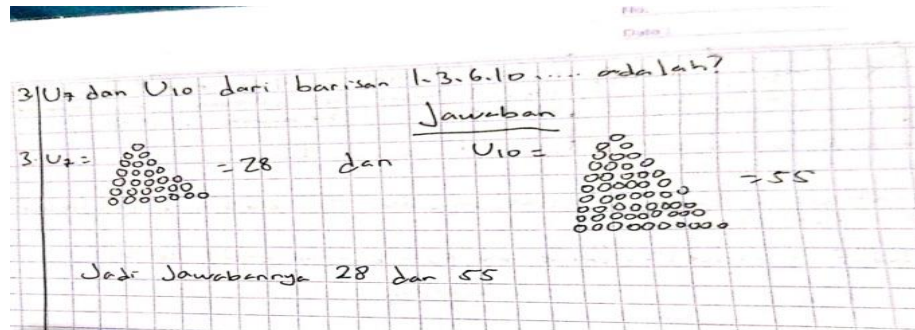 No.
Date :
3 U7 dan U10 dari barisan 1.3.6.10..... adalah?
Jawaban
3. U7 = = 28 dan U10 = = 55
Jadi Jawabannya 28 dan 55